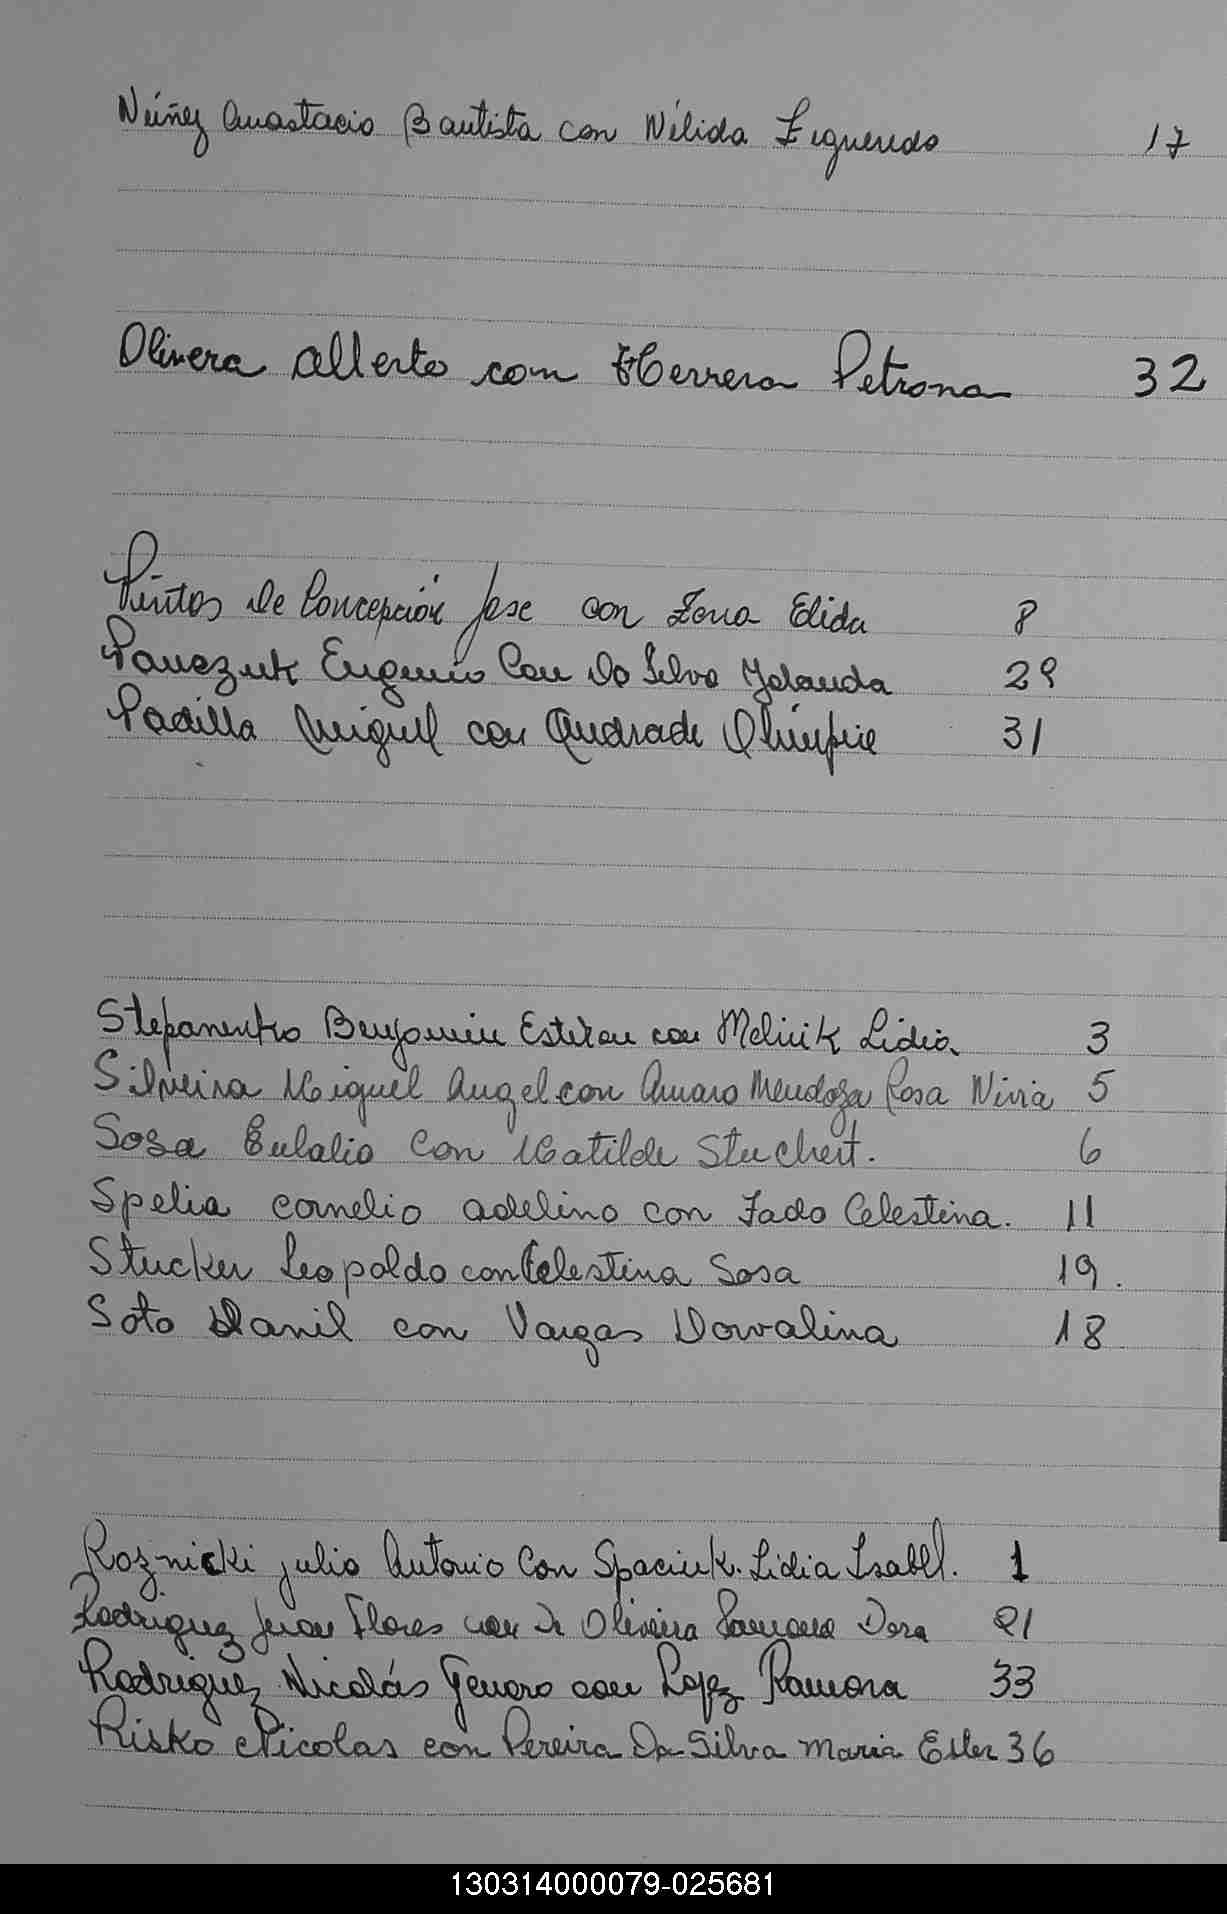 Núñez Anastacio Bautista con Nélida Figueredo 17
Olivera Alberto con Herrera Petrona 32
Pintos De Concepción Jose con Elida 8
Panczuk Eugenio Con Da Silva Yolanda 29
Padilla Miguel con Andrade Olimpia 31
Stepanenko Benjamin Esteban con Melnik Lidia 3
Silveira Miguel Angel con Amaro Mendoza Rosa Nivia 5
Sosa Eulalio Con Matilde Stuchert. 6
Spelia Cornelio Adelino con Celestina. 11
Stucker Leopoldo con Celestina Sosa 19.
Soto Danil con Vargas Dorvalina 18
Roznicki Julio Antonio Con Spaciuk. Lidia Isabel. 1
Rodriguez Juan Flores con De Oliveira Ramona Dora 21
Rodriguez Nicolás Genaro con Lopez Ramona 33
Risko Nicolas con Pereira Da Silva Maria Ester 36
130314000079-025681